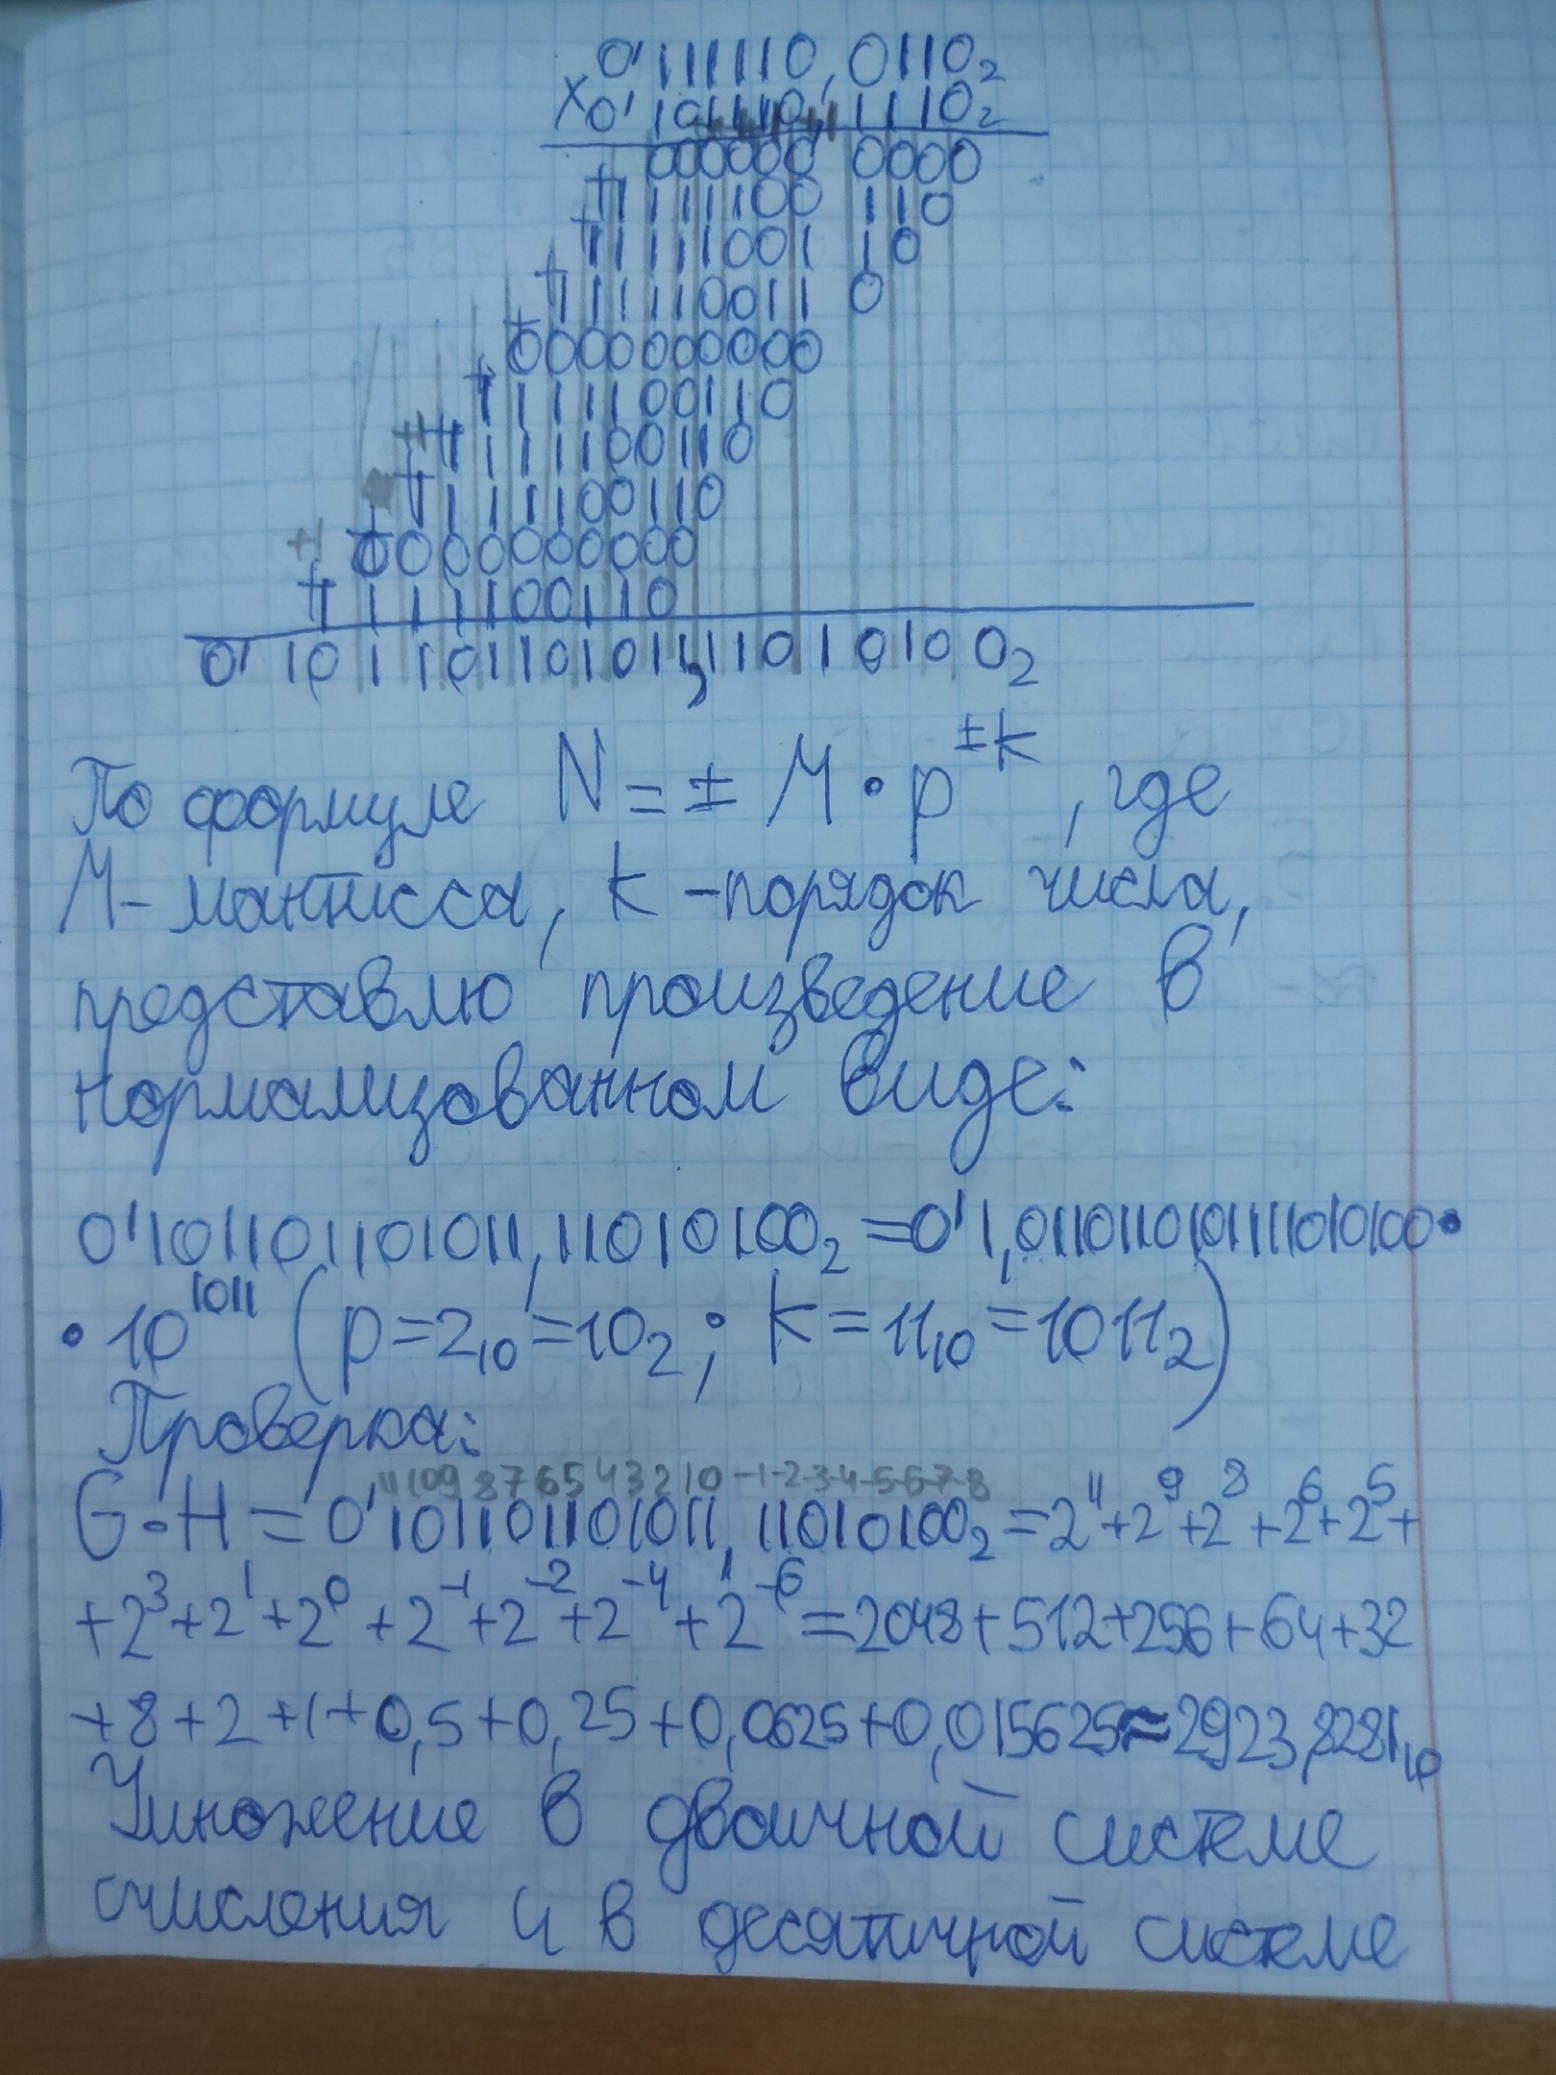 0'111110,0110₂
×0'101110,1110₂
000000 0000
+1111100 110
+1111001 10
+11110011 0
+0000000000
+1111100110
+1111100110
+1111100110
+0000000000
+1111100110
0'101101101011,11010100₂
По формуле N = ± M • p^±k, где
M - мантисса, k - порядок числа,
представлю произведение в
нормализованном виде:
0'101101101011,11010100₂ = 0'1,0110110101111010100•
•10^1011 (p=2₁₀=10₂; k=11₁₀=1011₂)
Проверка:
11 10 9 8 7 6 5 4 3 2 1 0 -1 -2 -3 -4 -5 -6 -7 -8
G•H = 0'101101101011,11010100₂ = 2^11+2^9+2^8+2^6+2^5+
+2^3+2^1+2^0+2^-1+2^-2+2^-4+2^-6=2048+512+256+64+32
+8+2+1+0,5+0,25+0,0625+0,015625≈2923,8281₁₀
Умножение в двоичной системе
счисления и в десятичной системе